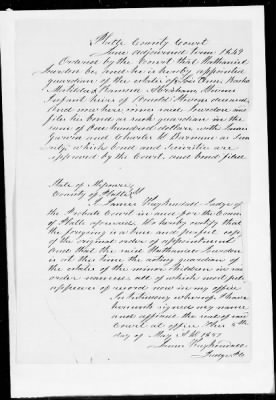 Platte County Court
June adjourned Term 1849
Ordered by the Court that Nathaniel
be and he is hereby appointed
guardian of the estates of Ann,
Matilda, Abraham
Infant heirs of deceased
And now here comes said and
files his bond as such guardian in the
sum of One hundred dollars with
and Charles as Secu
rity which bond and Securities are
approved by the Court, and bond filed
State of Missouri
County of Platte
I James Kuykendall Judge of
the Probate Court in and for the County
of Platte aforesaid do hereby certify that
the foregoing is a true and perfect copy
of the original order of appointment
and that the said Nathaniel
is at this time the acting guardian of
the estates of the minor children in said
order named all of which
appears of record now in my office
In testimony whereof I have
hereunto signed my name
and affixed the seal of said
Court at office this 8th
day of May A.D. 1851
James Kuykendall
Judge